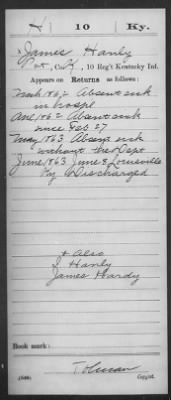 H 10 Ky.
James Hanly
Pvt., Co. K, 10 Reg't Kentucky Inf.
Appears on
Returns as follows:
Mch 1862 Absent sick
in hospl
Apl 1862 Absent sick
since Feb 27
May 1863 Absent sick
without the Dept
June 1863 June 8 Louisville
Ky Discharged
+ Also
J Hanly
James Hardy
Book mark:
Tolman
(546) Copyist.